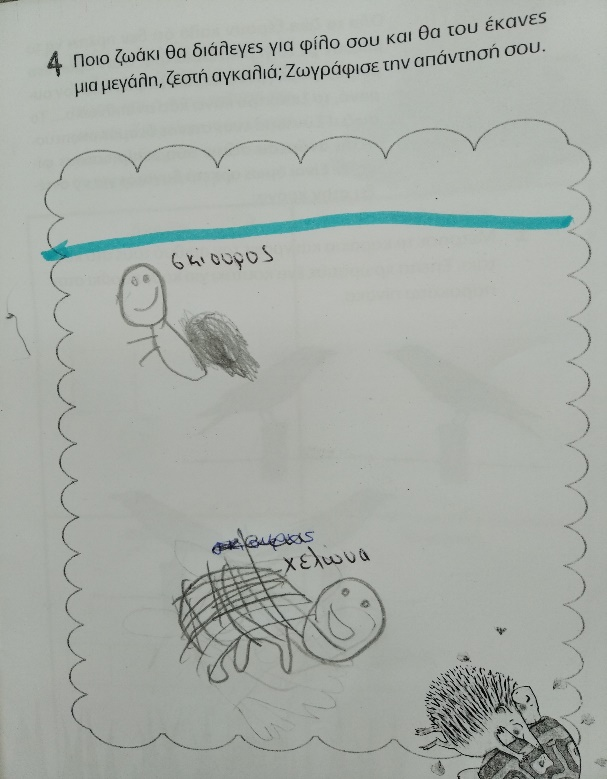 4 Ποιο ζωάκι θα διάλεγες για φίλο σου και θα του έκανες
μια μεγάλη, ζεστή αγκαλιά; Ζωγράφισε την απάντησή σου.
σκιουρος
χελώνα